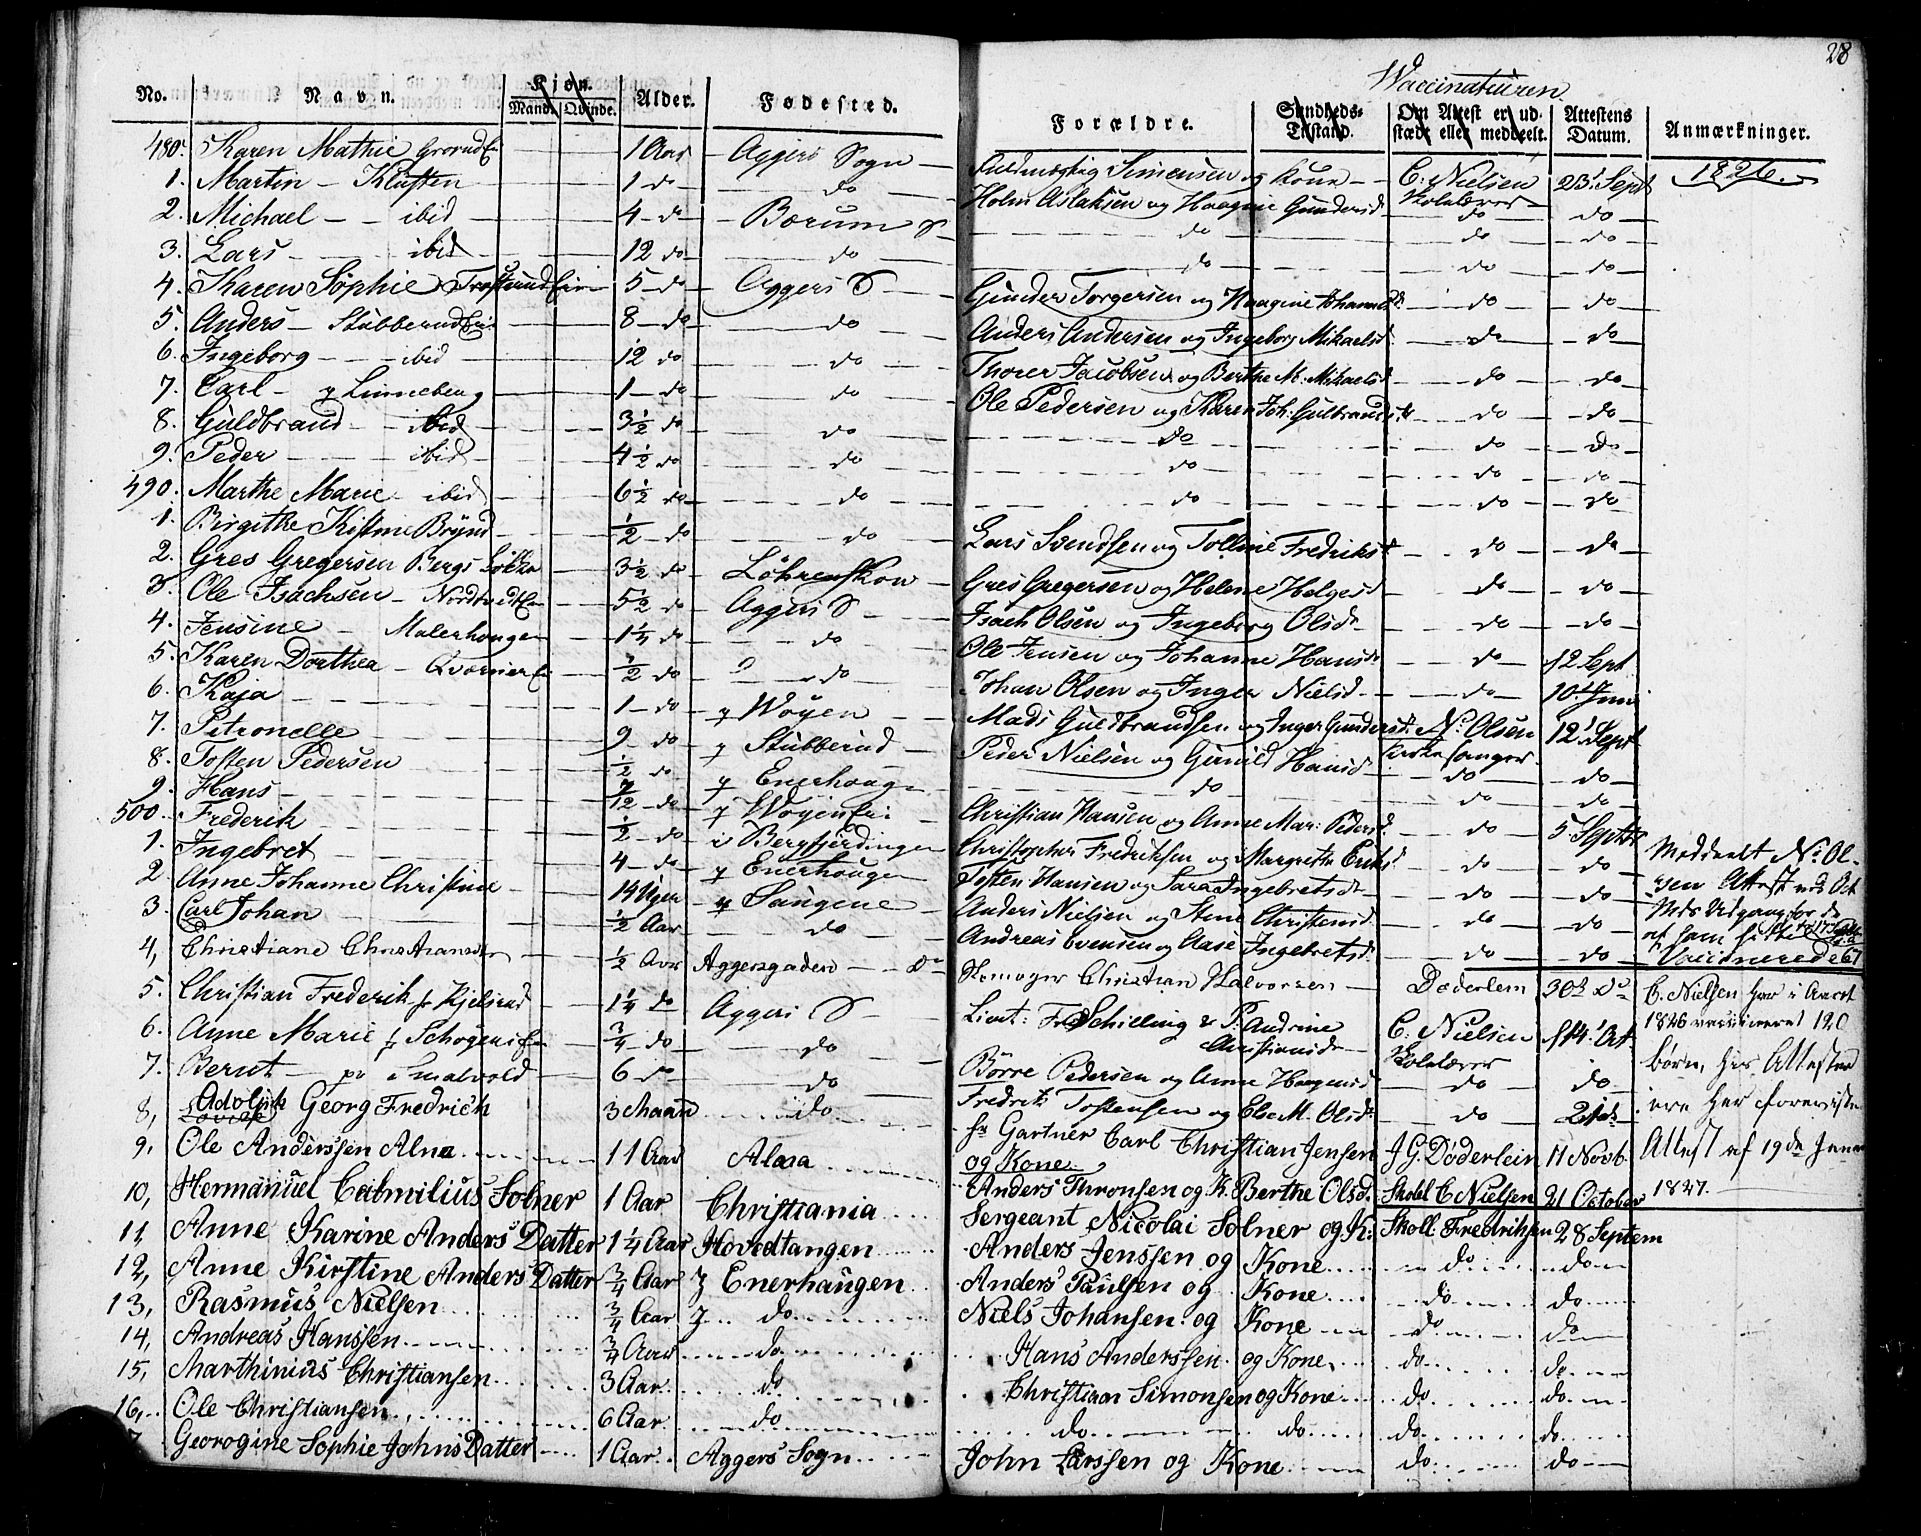 28
Vaccinatuiren
No. Navn. Kjøn. Mand. Qvinde. Alder. Fødested. Forældre. Sundheds-Tilstand. Om Attest er ud stædt eller meddeelt. Attestens Datum. Anmærkninger.
480. Karen Mathie Grorud Ei 1 Aar Aggers Sogn Simensen og Kone C. Nielsen Skolelærer 23 Sept 1826.
1. Martin Klüften 1 do do Holm Aslaksen og Haagine Gundersd do do
2. Michael ibid 4 do Bærum S do do do
3. Lars ibid 12 do do do do do
4. Karen Sophie Trosterud Eie 5 do Aggers S Gunder Torgersen og Haagine Johannesd. do do
5. Anders Stubberud Ei 8 do do Anders Andersen og Ingeborg Mikaelsd. do do
6. Ingeborg ibid 12 do do Thorer Jacobsen og Berthe M. Mikaelsd do do
7. Carl p Linneberg 1 do do Ole Pedersen og Karen Joh. Gulbrandsd do do
8. Guldbrand ibid 3 1/2 do do do do do
9. Peder ibid 4 1/2 do do do do do
490. Marthe Marie ibid 6 1/2 do do do do do
1. Birgithe Kistine Brÿnd 1/2 do do Lars Svendsen og Tolline Fredriksd do do
2. Gres Gregersen Bergs Løkke 3 1/2 do Löhrenskou Gres Gregersen og Helene Helgesd do do
3. Ole Isachsen Nordtvedt Ei 5 1/2 do Aggers S Isach Olsen og Ingeborg Olsd do do
4. Jensine Malerhougen 1 1/4 do do Ole Jensen og Johanne Hansd do 12 Sept
5. Karen Dorthea Qværner Ei 1/2 do do Johan Olsen og Inger Nielsd do 10 Juni
6. Kaja 1 do p Woyen Mads Guldbrandsen og Inger Gundersd. N. Olsen Kirkesanger 12 Sept
7. Petronelle 9 do p Stubberud Peder Nielsen og Gunild Hansd do do
8. Tosten Pedersen 1/2 do p Enerhougen do do do
9. Hans 9/12 do p Woyen Ei Christian Hansen og Anne Mar: Pedersd. do 5 Septbr
500. Frederik 1/2 do i Bergfjerdingen Christopher Fredriksen og Margrethe Eriksd do do Meddeelt N. Ol-
1. Ingebret 4 do p Enerhougen Tosten Hansen og Sara Ingebretsd do do sen Attest
2. Anne Johanne Christine 14 Uger p Saugene Anders Nielsen og Stine Christensd do do
3. Carl Johan 1/2 Aar do Andreas Evensen og Aase Ingebretsd. do do
4, Christiane Christiansdr 1/2 Aar Aggersgaden Do Skomager Christian Halvorsen Döderlein 30 Do Vaccinerede 67
5. Christian Frederik p Kjelsrud 1 1/4 do Aggers S Lieut: Fr Schilling & P. Andrine Christiansd C. Nielsen Skolelærer 14 Oct. C. Nielsen har i Aaret
6. Anne Marie p Schøyens Ei 3/4 do do Börre Pedersen og Anne Haagensd do do 1826 vaccineret 120
7. Bernt pa Smalvold 6 do do Fredrik Tostensen og Else M. Olsd do 21 börn, hvis Attester
8, Adolph Georg Fredrich 3 Maan do hr Gartner Carl Christian Jensen og Kone J G. Döderlein 11 Novb. ere her foreviste
9, Ole Anderssen Alna 11 Aar Alna Anders Thronsen og K. Berthe Olsd. Skolel C Nielsen 21 October Attest af 19de Januar 1827.
10, Hermanuel Calmilius Solner 1 Aar Christiania Sergeant Nicolai Solner og K: Skoll. Fredriksen 28 Septem
11, Anne Karine Anders Datter 1 1/4 Aar Hovedtangen Anders Jenssen og Kone do do
12, Anne Kirstine Anders Datter 3/4 Aar Enerhaugen Anders Paulsen og Kone do do
13, Rasmus Nielsen 3/4 Aar do Niels Johansen og Kone do do
14, Andreas Hanssen 3/4 Aar do Hans Anderssen og Kone, do do
15, Marthinius Christiansen 3 Aar do Christian Simonsen og Kone do do
16, Ole Christiansen 6 Aar do do do do do
Georogine Sophie Johns Datter 1 Aar Aggers Sogn John Larssen og Kone do do